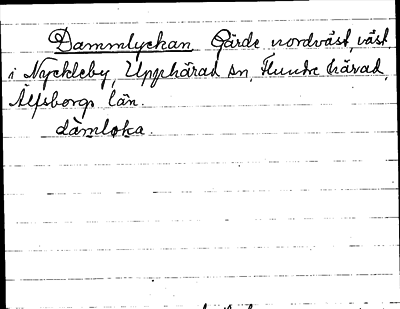 Dammlyckan, Gärde nordväst, väst
i Nyckleby, Upphärad sn, Flundre härad,
Älfsborgs län.
dàmloka.